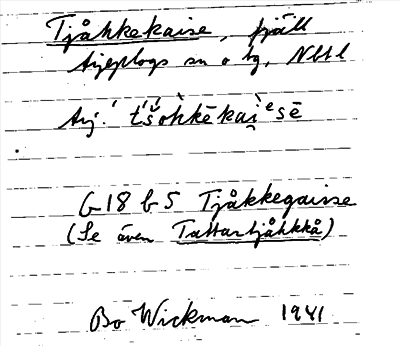 Tjåhkekaise, fjäll
Arjeplogs sn o tg, Nbtl
Arj. t́š́ohkēkai̯ᵉsē
G18 b5 Tjåkkegaisse
(Se även Tattartjåhkkå)
Bo Wickman 1941